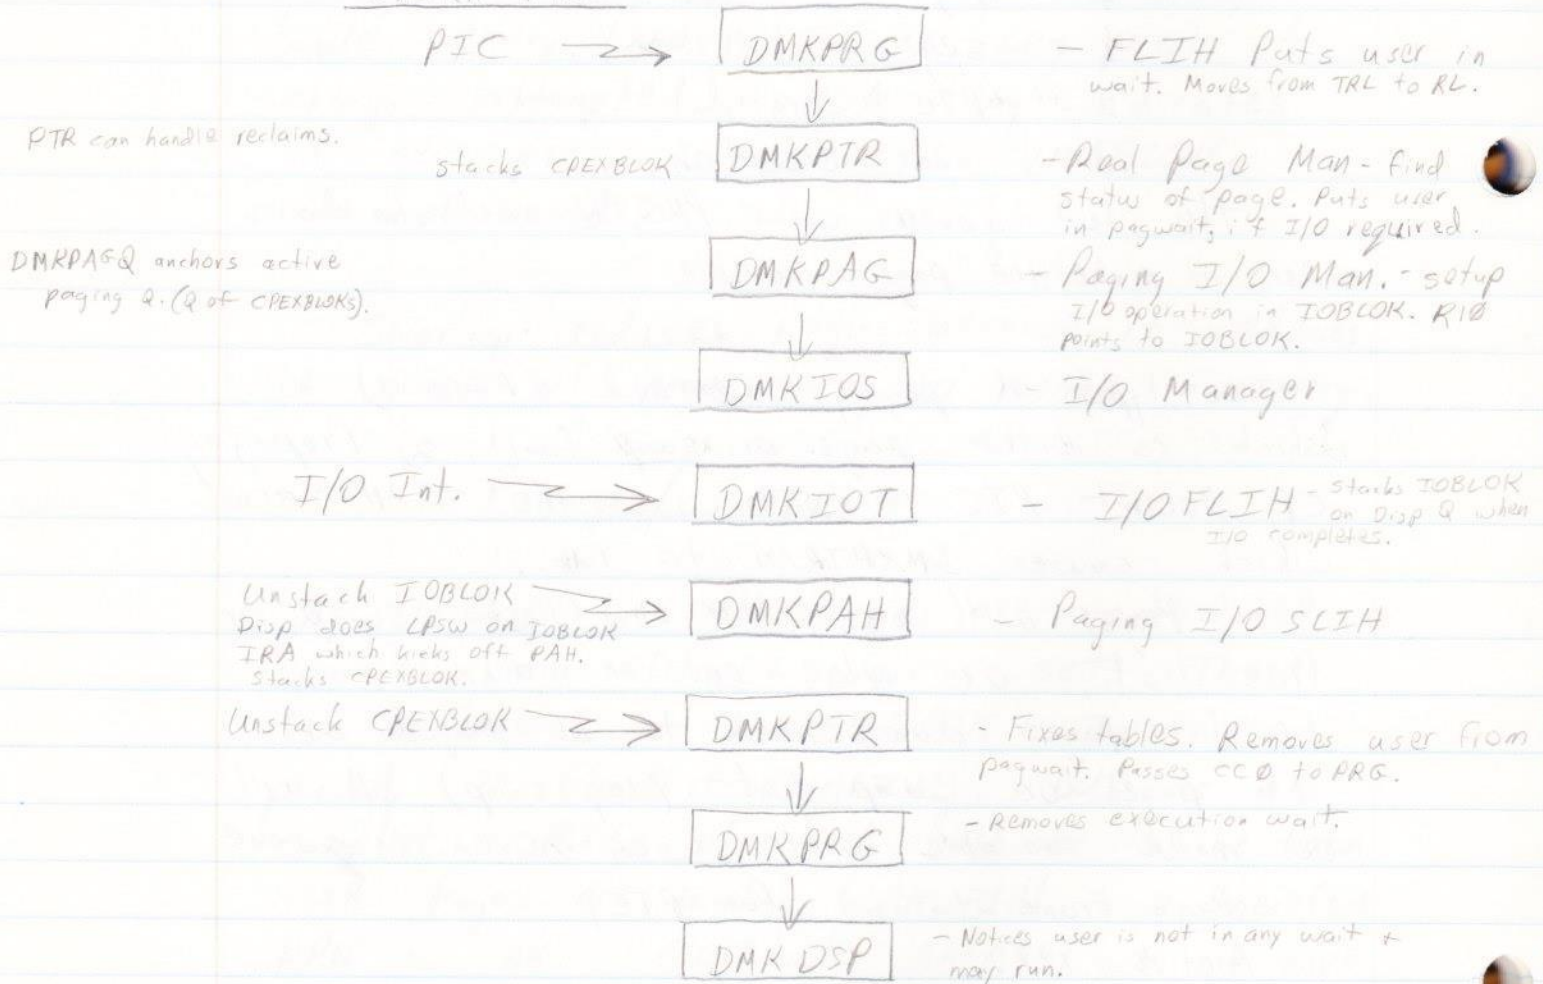 PIC
DMKPRG
- FLIH Puts user in
wait. Moves from TRL to RL.
PTR can handle reclaims.
stacks CPEXBLOK
DMKPTR
- Real Page Man - find
status of page. Puts user
in pagwait, if I/O required.
DMKPAGQ anchors active
paging Q. (Q of CPEXBLOKs).
DMKPAG
- Paging I/O Man. - setup
I/O operation in IOBLOK. R10
points to IOBLOK.
DMKIOS
- I/O Manager
I/O Int.
DMKIOT
- I/O FLIH - stacks IOBLOK
on Disp Q when
I/O completes.
Unstack IOBLOK
Disp does LPSW on IOBLOK
IRA which kicks off PAH.
Stacks CPEXBLOK.
DMKPAH
- Paging I/O SLIH
Unstack CPEXBLOK
DMKPTR
- Fixes tables. Removes user from
pagwait. Passes CC0 to PRG.
DMKPRG
- Removes execution wait.
DMKDSP
- Notices user is not in any wait +
may run.